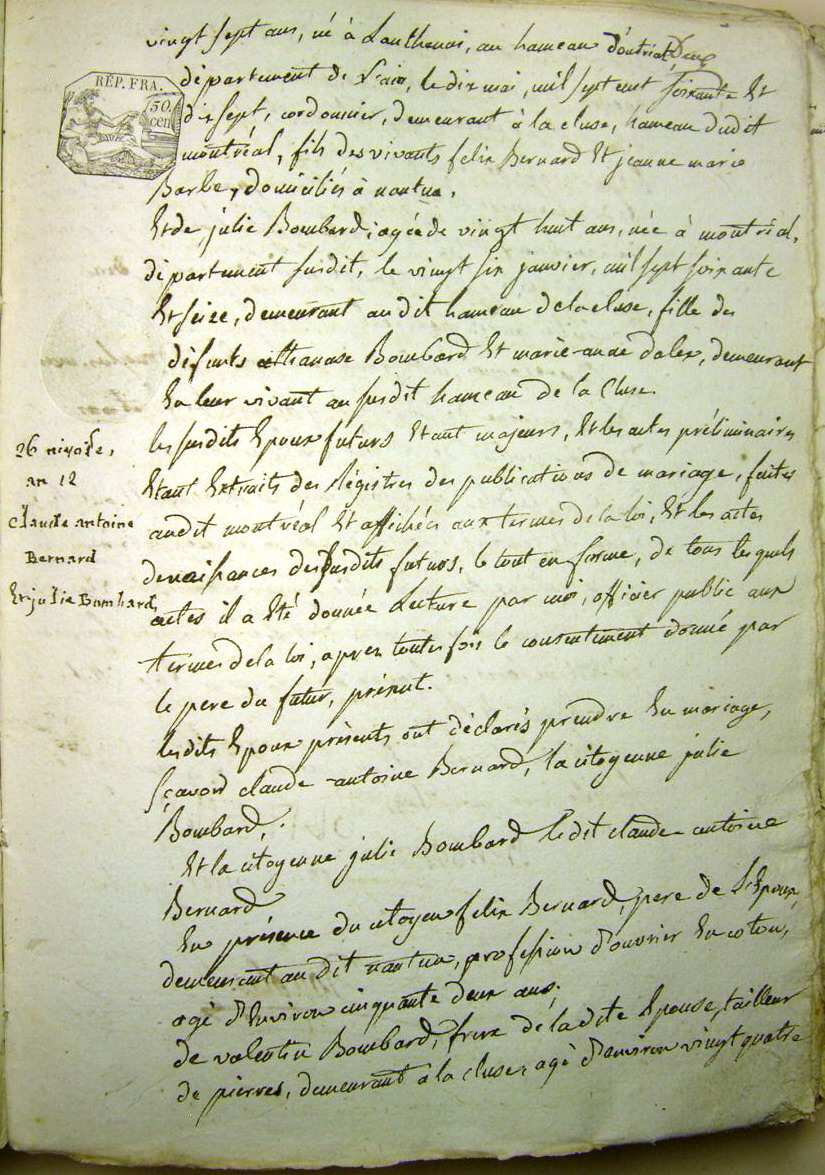 vingt sept ans, né à Lanthenai, au hameau d'outriat, Deux
RÉP. FRA.
50.
cen
département de l'ain, le dix mai, mil sept cent soixante Et
dix sept, cordonnier, demeurant à la cluse, hameau dudit
montréal, fils des vivants felix Bernard Et jeanne marie
Barbe, domiciliés à nantua.
Et de julie Bombard, agée de vingt huit ans, née à montréal,
département susdit, le vingt six janvier, mil sept soixante
Et seize, demeurant au dit hameau de la cluse, fille des
défunts athanase Bombard Et marie-anne dalex, demeurant
En leur vivant au susdit hameau de la Cluse.
les susdits Epoux futurs Etant majeurs, Et les actes préliminaires
Etant Extraits des régistres des publications de mariage, faites
audit montréal Et affichées aux termes de la loi, Et les actes
de naissances des susdits futurs, le tout en forme, de tous lesquels
actes il a Eté donnée Lecture par moi, officier public aux
termes de la loi, apres toutes fois le consentement donné par
le pere du futur, présent.
lesdits Epoux présents ont déclarés prendre En mariage,
sçavoir claude-antoine Bernard, la citoyenne julie
Bombard,
Et la citoyenne julie Bombard ledit claude-antoine
Bernard
En présence du citoyen felix Bernard, pere de L'Epoux,
demeurant au dit nantua, profession d'ouvrier En coton,
agé d'Environ cinquante deux ans,
de valentin Bombard, frere de la dite Epouse, tailleur
de pierres, demeurant à la cluse, agé d'environ vingt quatre
26 nivose,
an 12
claude antoine
Bernard
Et julie Bombard